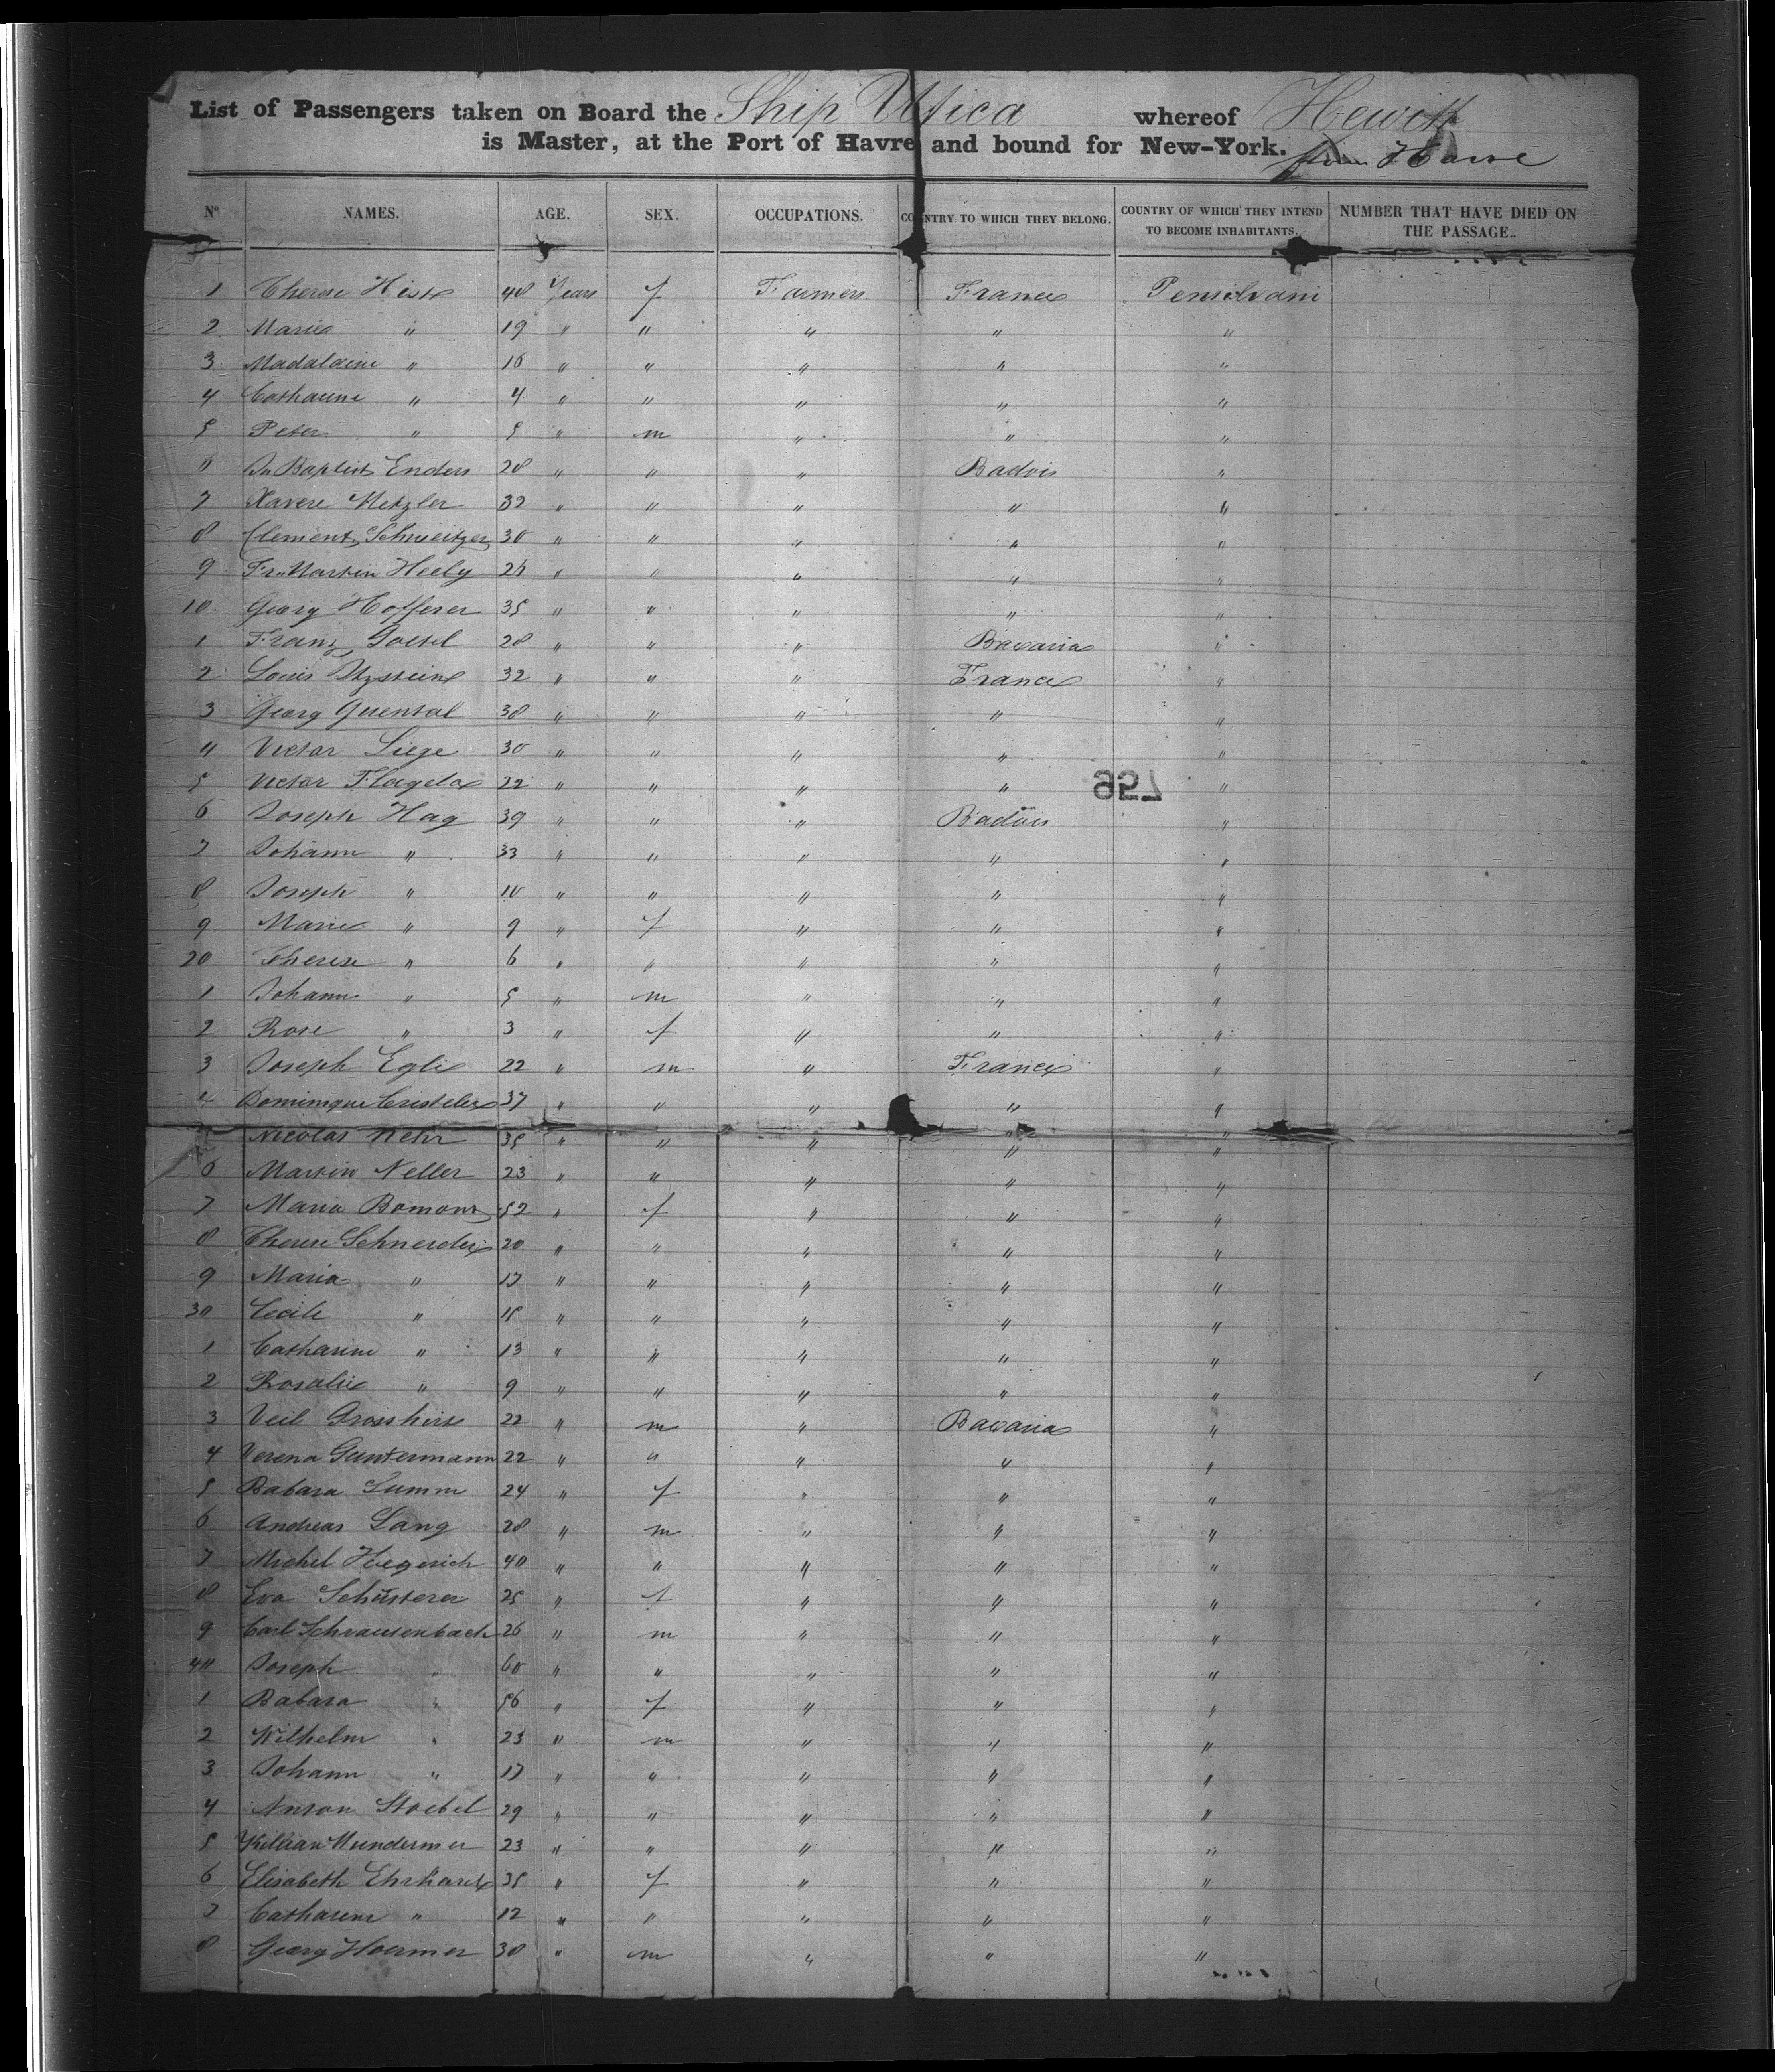 List of Passengers taken on Board the Ship Utica whereof Hewitt
is Master, at the Port of Havre and bound for New-York. from Havre
N° NAMES. AGE. SEX. OCCUPATIONS. COUNTRY TO WHICH THEY BELONG. COUNTRY OF WHICH THEY INTEND TO BECOME INHABITANTS. NUMBER THAT HAVE DIED ON THE PASSAGE.
1 Therese 48 Years f Farmers France Pensilvani
2 Marie " 19 " " " " "
3 Madalaine " 16 " " " " "
4 Catharine " 4 " " " " "
5 Peter " 5 " m " " "
6 Jn Baptist Enders 28 " " " Badois "
7 Xavere Metzler 32 " " " " "
8 Clement Schweitzer 30 " " " " "
9 Fr. Martin Heely " " " " "
10 Georg Hofferer 35 " " " " "
1 Franz Goetel 28 " " " Bavaria "
2 Louis Itzstein 32 " " " France "
3 Georg Quental 38 " " " " "
4 Victor Liege 30 " " " " "
5 Victor 22 " " " " "
6 Joseph Hag 39 " " " Badois "
7 Johann " 33 " " " " "
8 Joseph " 10 " " " " "
9 Marie " 9 " f " " "
20 Therese " 6 " " " " "
1 Johann " 5 " m " " "
2 Rose " 3 " f " " "
3 Joseph Egli 22 " m " France "
4 Dominique 37 " " " " "
Nicolas Nehr 35 " " " " "
6 Martin Neller 23 " " " " "
7 Maria Bomont 52 " f " " "
8 Therese Schneider 20 " " " " "
9 Maria " 17 " " " " "
30 Cecile " 15 " " " " "
1 Catharine " 13 " " " " "
2 Rosalie " 9 " " " " "
3 Veil Grosshirt 22 " m " Bavaria "
4 Verena Guntermann 22 " " " " "
5 Babara Lumm 24 " f " " "
6 Andreas Lang 28 " m " " "
7 Michel Hegerich 40 " " " " "
8 Eva Schusterer 25 " f " " "
9 Carl Schrausenbach 26 " m " " "
40 Joseph " 60 " " " " "
1 Babara " 56 " f " " "
2 Wilhelm " 23 " m " " "
3 Johann " 17 " " " " "
4 Anton Stoebel 29 " " " " "
5 Killian 23 " " " " "
6 Elisabeth Ehrhard 35 " f " " "
7 Catharine " 12 " " " " "
8 Georg Hoermer 30 " m " " "